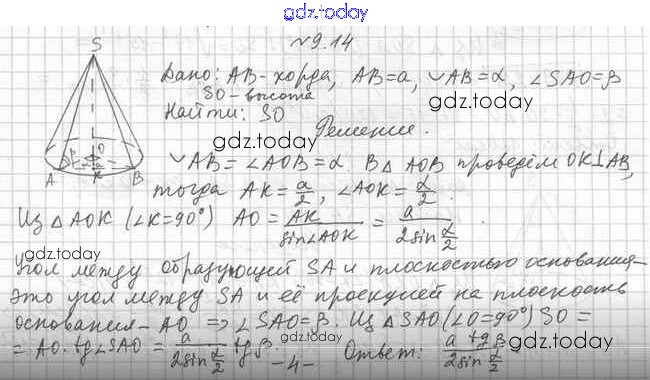 gdz.today
№9.14
S
Дано: AB-хорда, AB=a, ◡AB=α, ∠SAO=β
SO-высота
Найти: SO
gdz.today
gdz.today
Решение.
O
β
α/2
A K B
◡AB = ∠AOB = α. В △ AOB проведём OK⊥AB,
тогда AK = a/2, ∠AOK = α/2.
gdz.today
Из △ AOK (∠K=90°) AO = AK/sin∠AOK = a/(2sin α/2)
gdz.today
Угол между образующей SA и плоскостью основания-
это угол между SA и её проекцией на плоскость
основания - AO => ∠SAO=β. Из △ SAO (∠O=90°) SO =
gdz.today
= AO·tg∠SAO = a/(2sin α/2) tg β.
Ответ: a tg β/(2sin α/2).
-4-
gdz.today